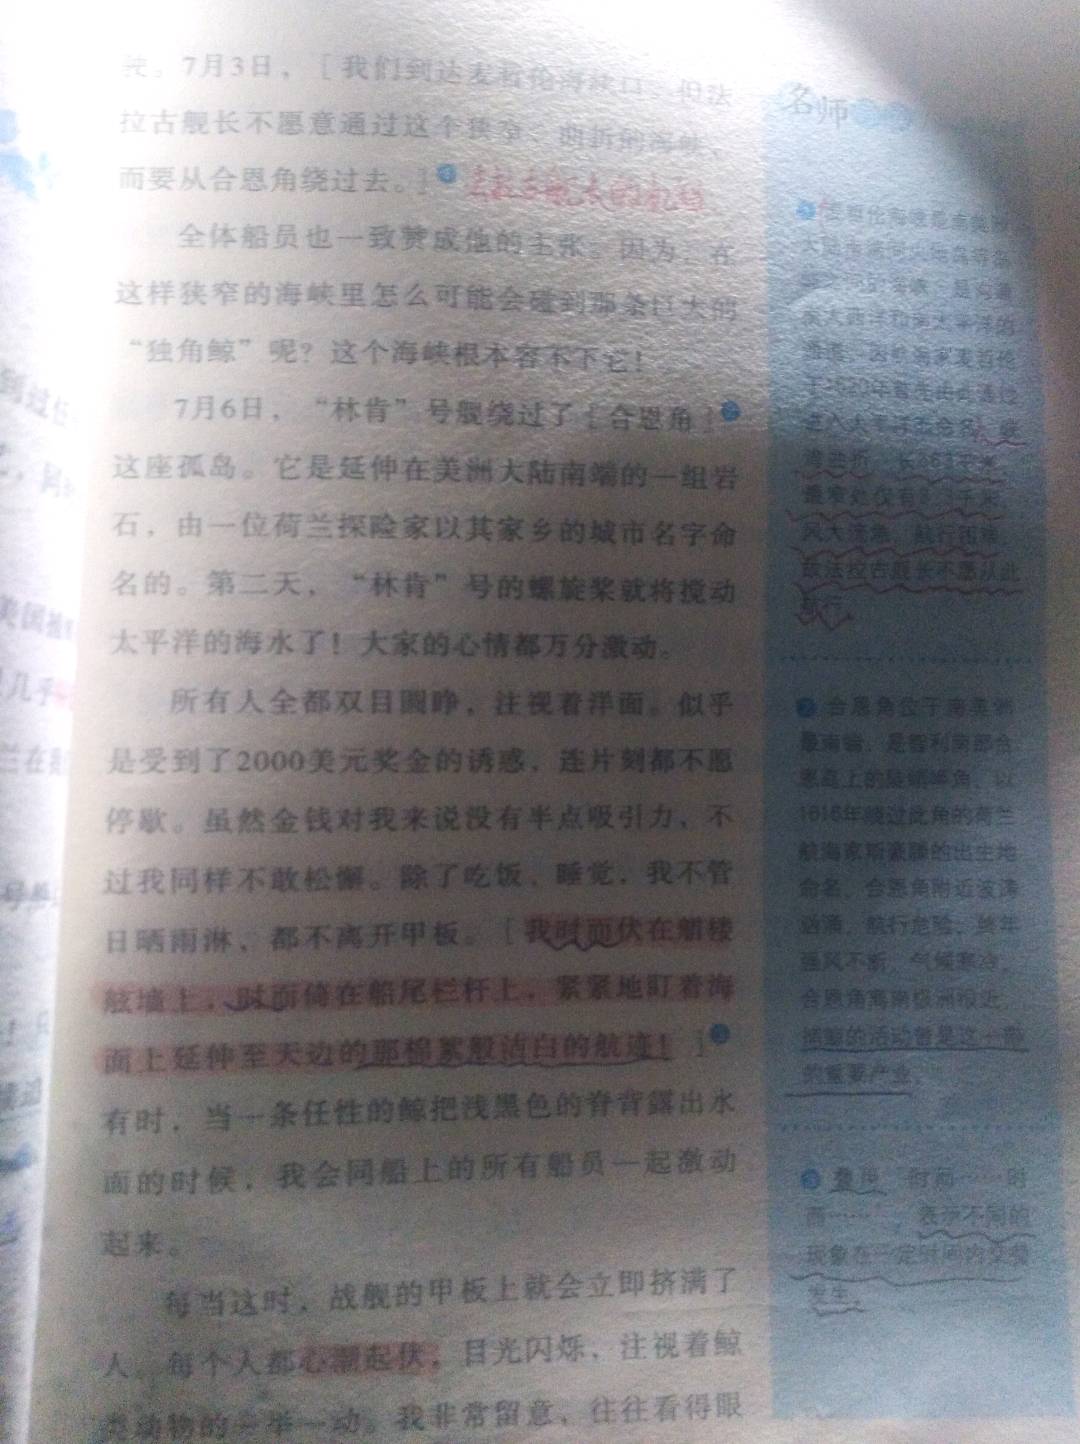 峡。7月3日，［我们到达麦哲伦海峡口，但法
拉古舰长不愿意通过这个狭窄、曲折的海峡，
而要从合恩角绕过去。］① 法拉古舰长的
全体船员也一致赞成他的主张。因为，在
这样狭窄的海峡里怎么可能会碰到那条巨大的
“独角鲸”呢？这个海峡根本容不下它！
7月6日，“林肯”号舰绕过了［合恩角］②
这座孤岛。它是延伸在美洲大陆南端的一组岩
石，由一位荷兰探险家以其家乡的城市名字命
名的。第二天，“林肯”号的螺旋桨就将搅动
太平洋的海水了！大家的心情都万分激动。
所有人全都双目圆睁，注视着洋面。似乎
是受到了2000美元奖金的诱惑，连片刻都不愿
停歇。虽然金钱对我来说没有半点吸引力，不
过我同样不敢松懈。除了吃饭、睡觉，我不管
日晒雨淋，都不离开甲板。［我时而伏在艏楼
舷墙上，时而倚在船尾栏杆上，紧紧地盯着海
面上延伸至天边的那棉絮般洁白的航迹！］③
有时，当一条任性的鲸把浅黑色的脊背露出水
面的时候，我会同船上的所有船员一起激动
起来。
每当这时，战舰的甲板上就会立即挤满了
人，每个人都心潮起伏，目光闪烁，注视着鲸
类动物的一举一动。我非常留意，往往看得眼
名师
①麦哲伦海峡是南美洲
大陆南端同火地岛等岛
之间的海峡，是沟通
南大西洋和南太平洋的
通道，因航海家麦哲伦
于1520年首先由此通过
进入太平洋而命名。峡
湾曲折，长563千米，
最窄处仅有3.3千米，
风大流急，航行困难，
故法拉古舰长不愿从此
航行。
②合恩角位于南美洲
最南端，是智利南部合
恩岛上的陡峭岬角，以
1616年绕过此角的荷兰
航海家斯豪滕的出生地
命名。合恩角附近波涛
汹涌，航行危险，终年
强风不断，气候寒冷。
合恩角离南极洲很近，
捕鲸的活动曾是这一带
的重要产业。
③叠用“时而……时
而……”，表示不同的
现象在一定时间内交替
发生。